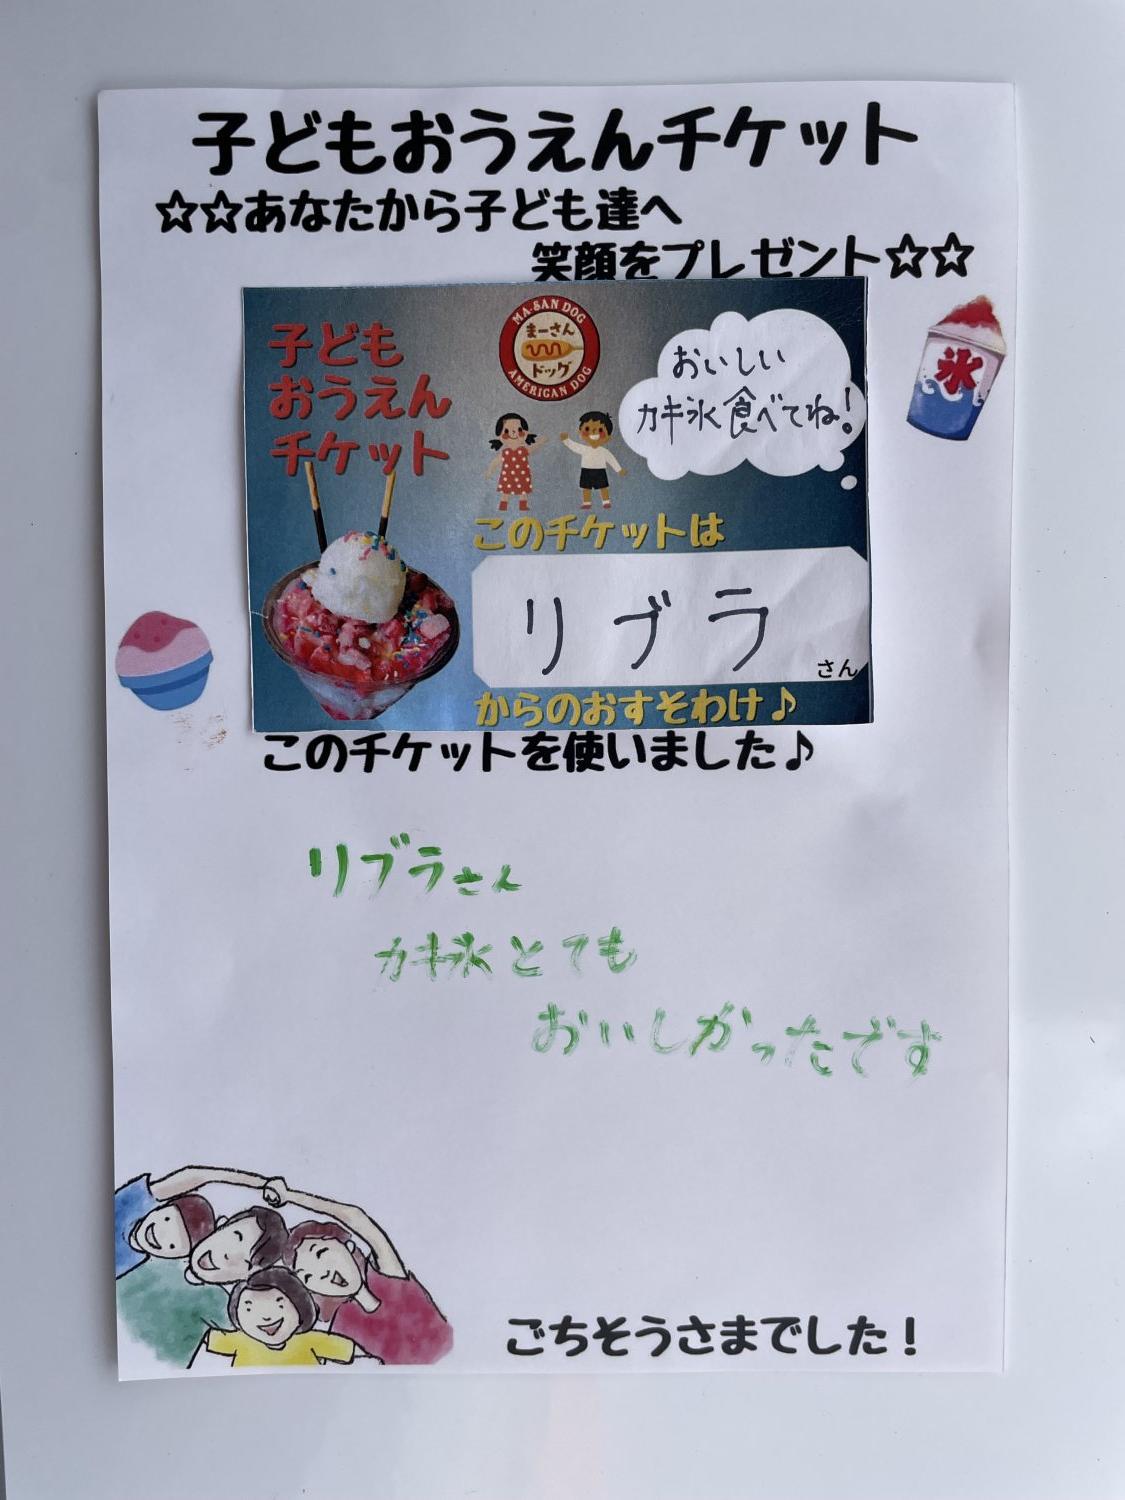 子どもおうえんチケット
☆☆あなたから子ども達へ
笑顔をプレゼント☆☆
氷
子ども
おうえん
チケット
MA-SAN DOG
まーさん
ドッグ
AMERICAN DOG
おいしい
カキ氷食べてね!
このチケットは
リブラ
さん
からのおすそわけ♪
このチケットを使いました♪
リブラさん
カキ氷とても
おいしかったです
ごちそうさまでした!